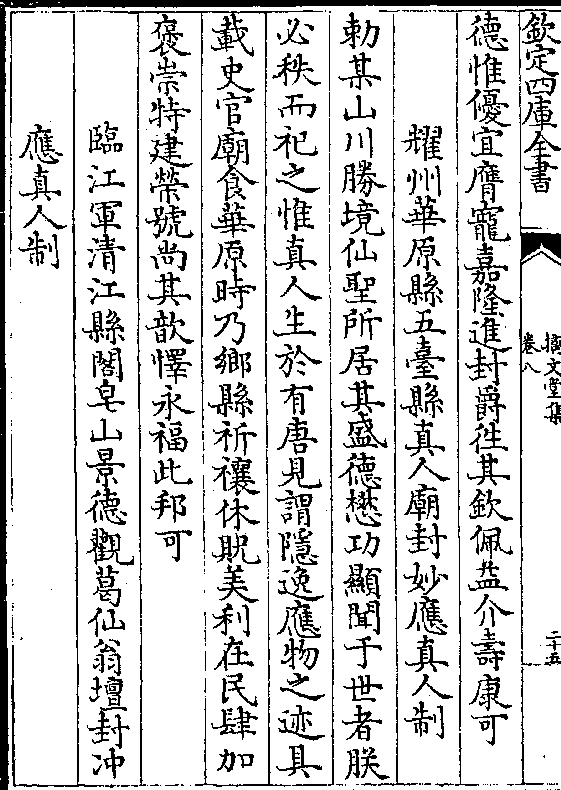 欽定四庫全書
摛文堂集
卷八
二十五
德惟優宜膺寵嘉隆進封爵徃其欽佩益介壽康可
耀州華原縣五臺縣真人廟封妙應真人制
勅某山川勝境仙聖所居其盛德懋功顯聞于世者朕
必秩而祀之惟真人生於有唐見謂隱逸應物之迹具
載史官廟食華原時乃鄉縣祈禳休貺美利在民肆加
褒崇特建榮號尚其歆懌永福此邦可
臨江軍清江縣閤皂山景德觀葛仙翁壇封冲
應真人制